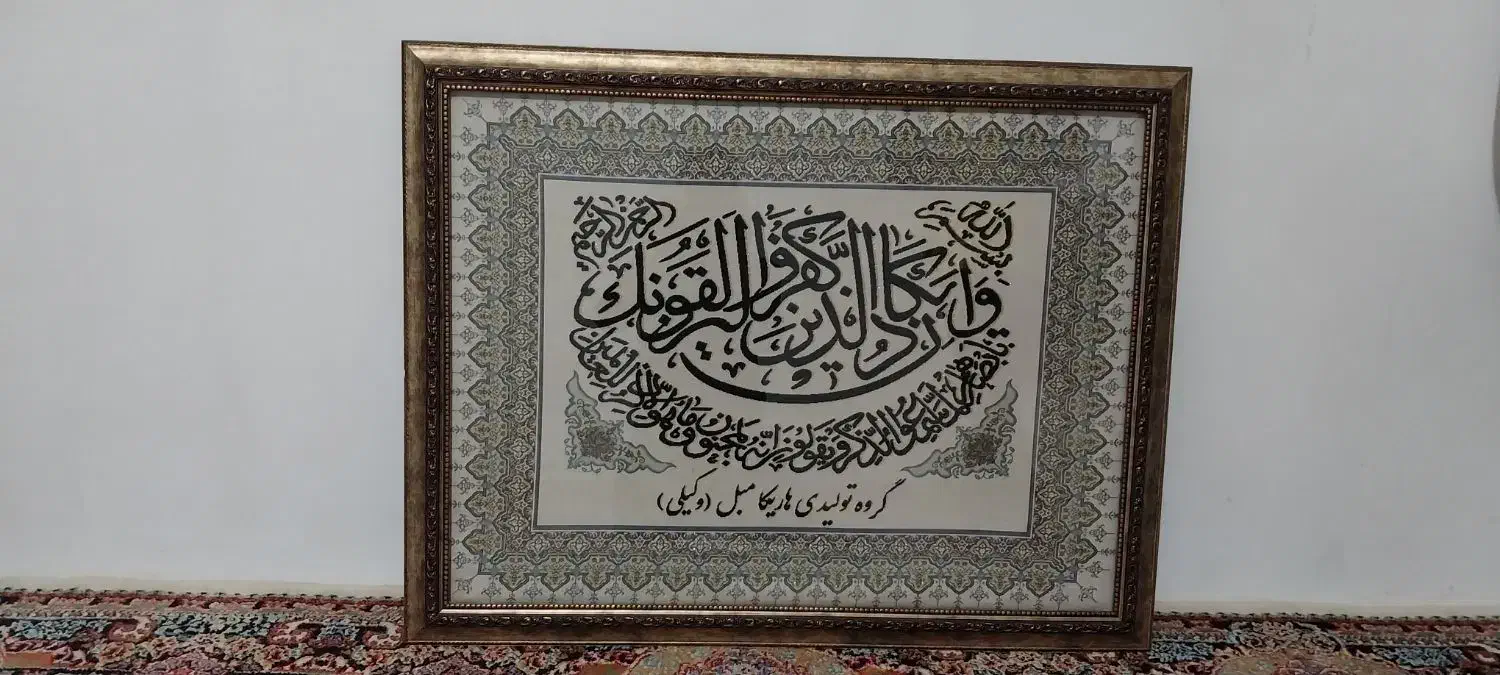 بسم الله الرحمن الرحیم
وان یکاد الذین کفروا لیزلقونک
بابصارهم لما سمعوا الذکر و یقولون انه لمجنون و ما هو الا ذکر للعالمین
گروه تولیدی هاریکا مبل (وکیلی)